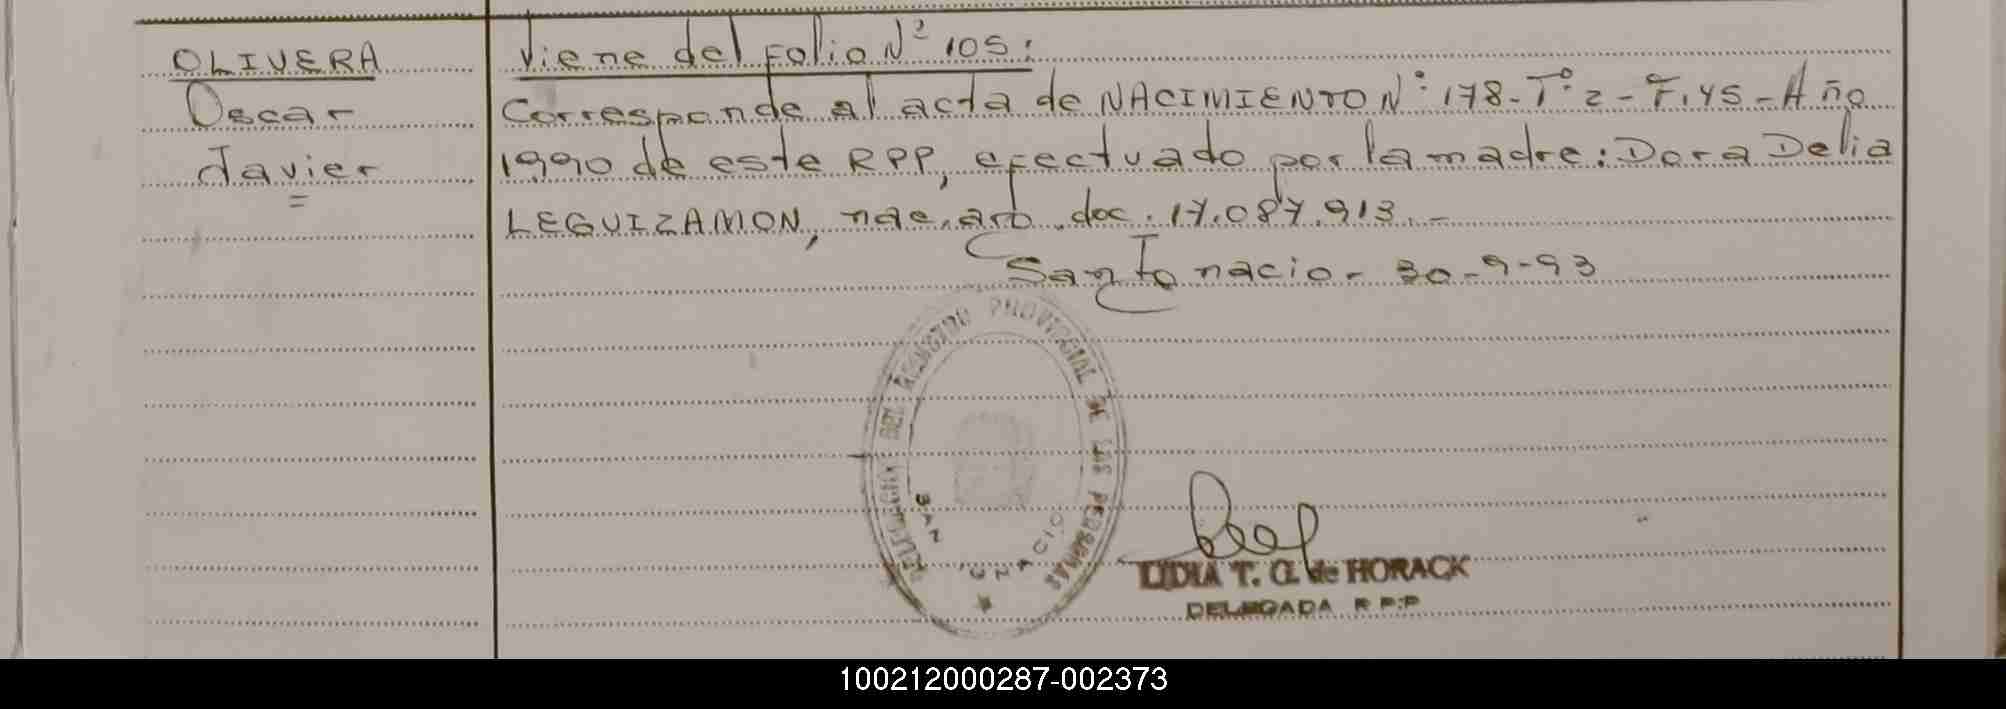 OLIVERA
Oscar
Javier
Viene del Folio Nº 105:
Corresponde al acta de NACIMIENTO Nº 178 - Tº 2 - F. 45 - Año
1990 de este RPP, efectuado por la madre: Dora Delia
LEGUIZAMON, nac. arg. doc. 17.087.913. -
San Ignacio - 30-9-93
DELEGACION DEL REGISTRO PROVINCIAL DE LAS PERSONAS
SAN IGNACIO
LIDIA T. G. de HORACK
DELEGADA R P P
100212000287-002373